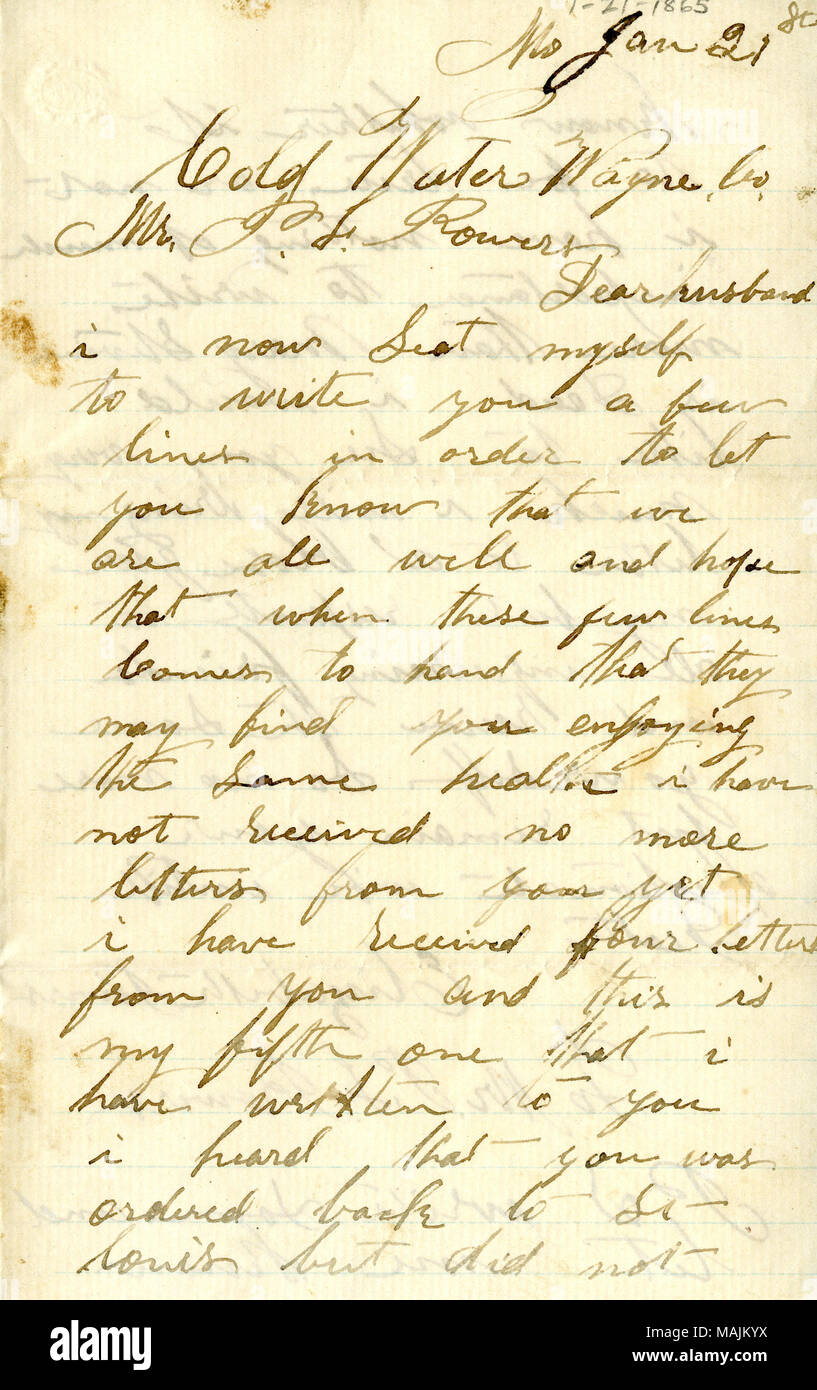 1-21-1865
Mo Jan 21st
Cold Water Wayne, Co,
Mr. P. L. Rowers
Dear husband
i now Seat myself
to write you a few
lines in order to let
you Know that we
are all well and hope
that when these few lines
Comes to hand that they
may find you enjoying
the Same health i have
not received no more
letters from you yet
i have received four letters
from you and this is
my fifth one that i
have written to you
i heard that you was
ordered back to St
louis but did not
alamy
Image ID: MAJKYX
www.alamy.com